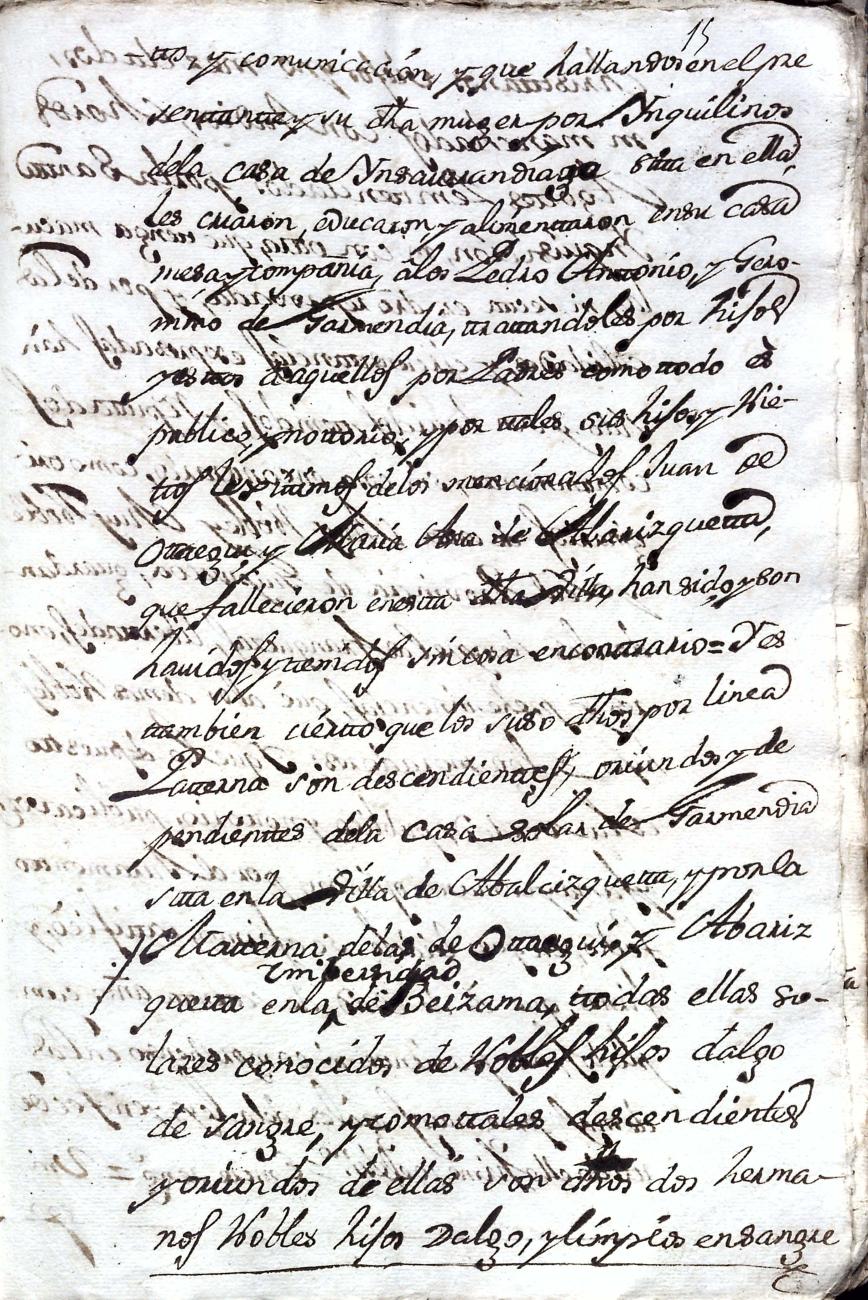 15
tto, y comunicación, y que hallandose en el pre
sentante y su dha muger por Ynquilinos
dela casa de Ynsaurrandiaga sitta en ella,
les criaron, educaron y alimenttaron en su casa
mesa y compañia, álos Pedro Anttonio, y Gero-
nimo de Garmendia, trattandoles por hijos
y esttos á aquellos por Padres como ttodo es
publico, y nottorio, y por ttales sus hijos y Nie-
ttos lexittimos delos mencionados Juan de
Ottaegui y Maria Ana de Abarizquetta,
que fallecieron en estta dha Villa, han sido, y son
havidos y ttenidos sin cosa en conttrario = Y es
ttambien cierto que los suso dhos por linea
Patterna son descendienttes, oriundos y de
pendienttes dela Casa solar de Garmendia
sitta en la Villa de Abalcizquetta, y por la
Matterna delas de Ottaegui y Abariz
Vniversidad
quetta en la de Beizama, ttodas ellas so-
lares conocidos de Nobles hijos dalgo
de sangre, y como ttales descendientes
y oriundos de ellas son dhos dos herma-
nos Nobles hijos Dalgo, y limpios en sangre